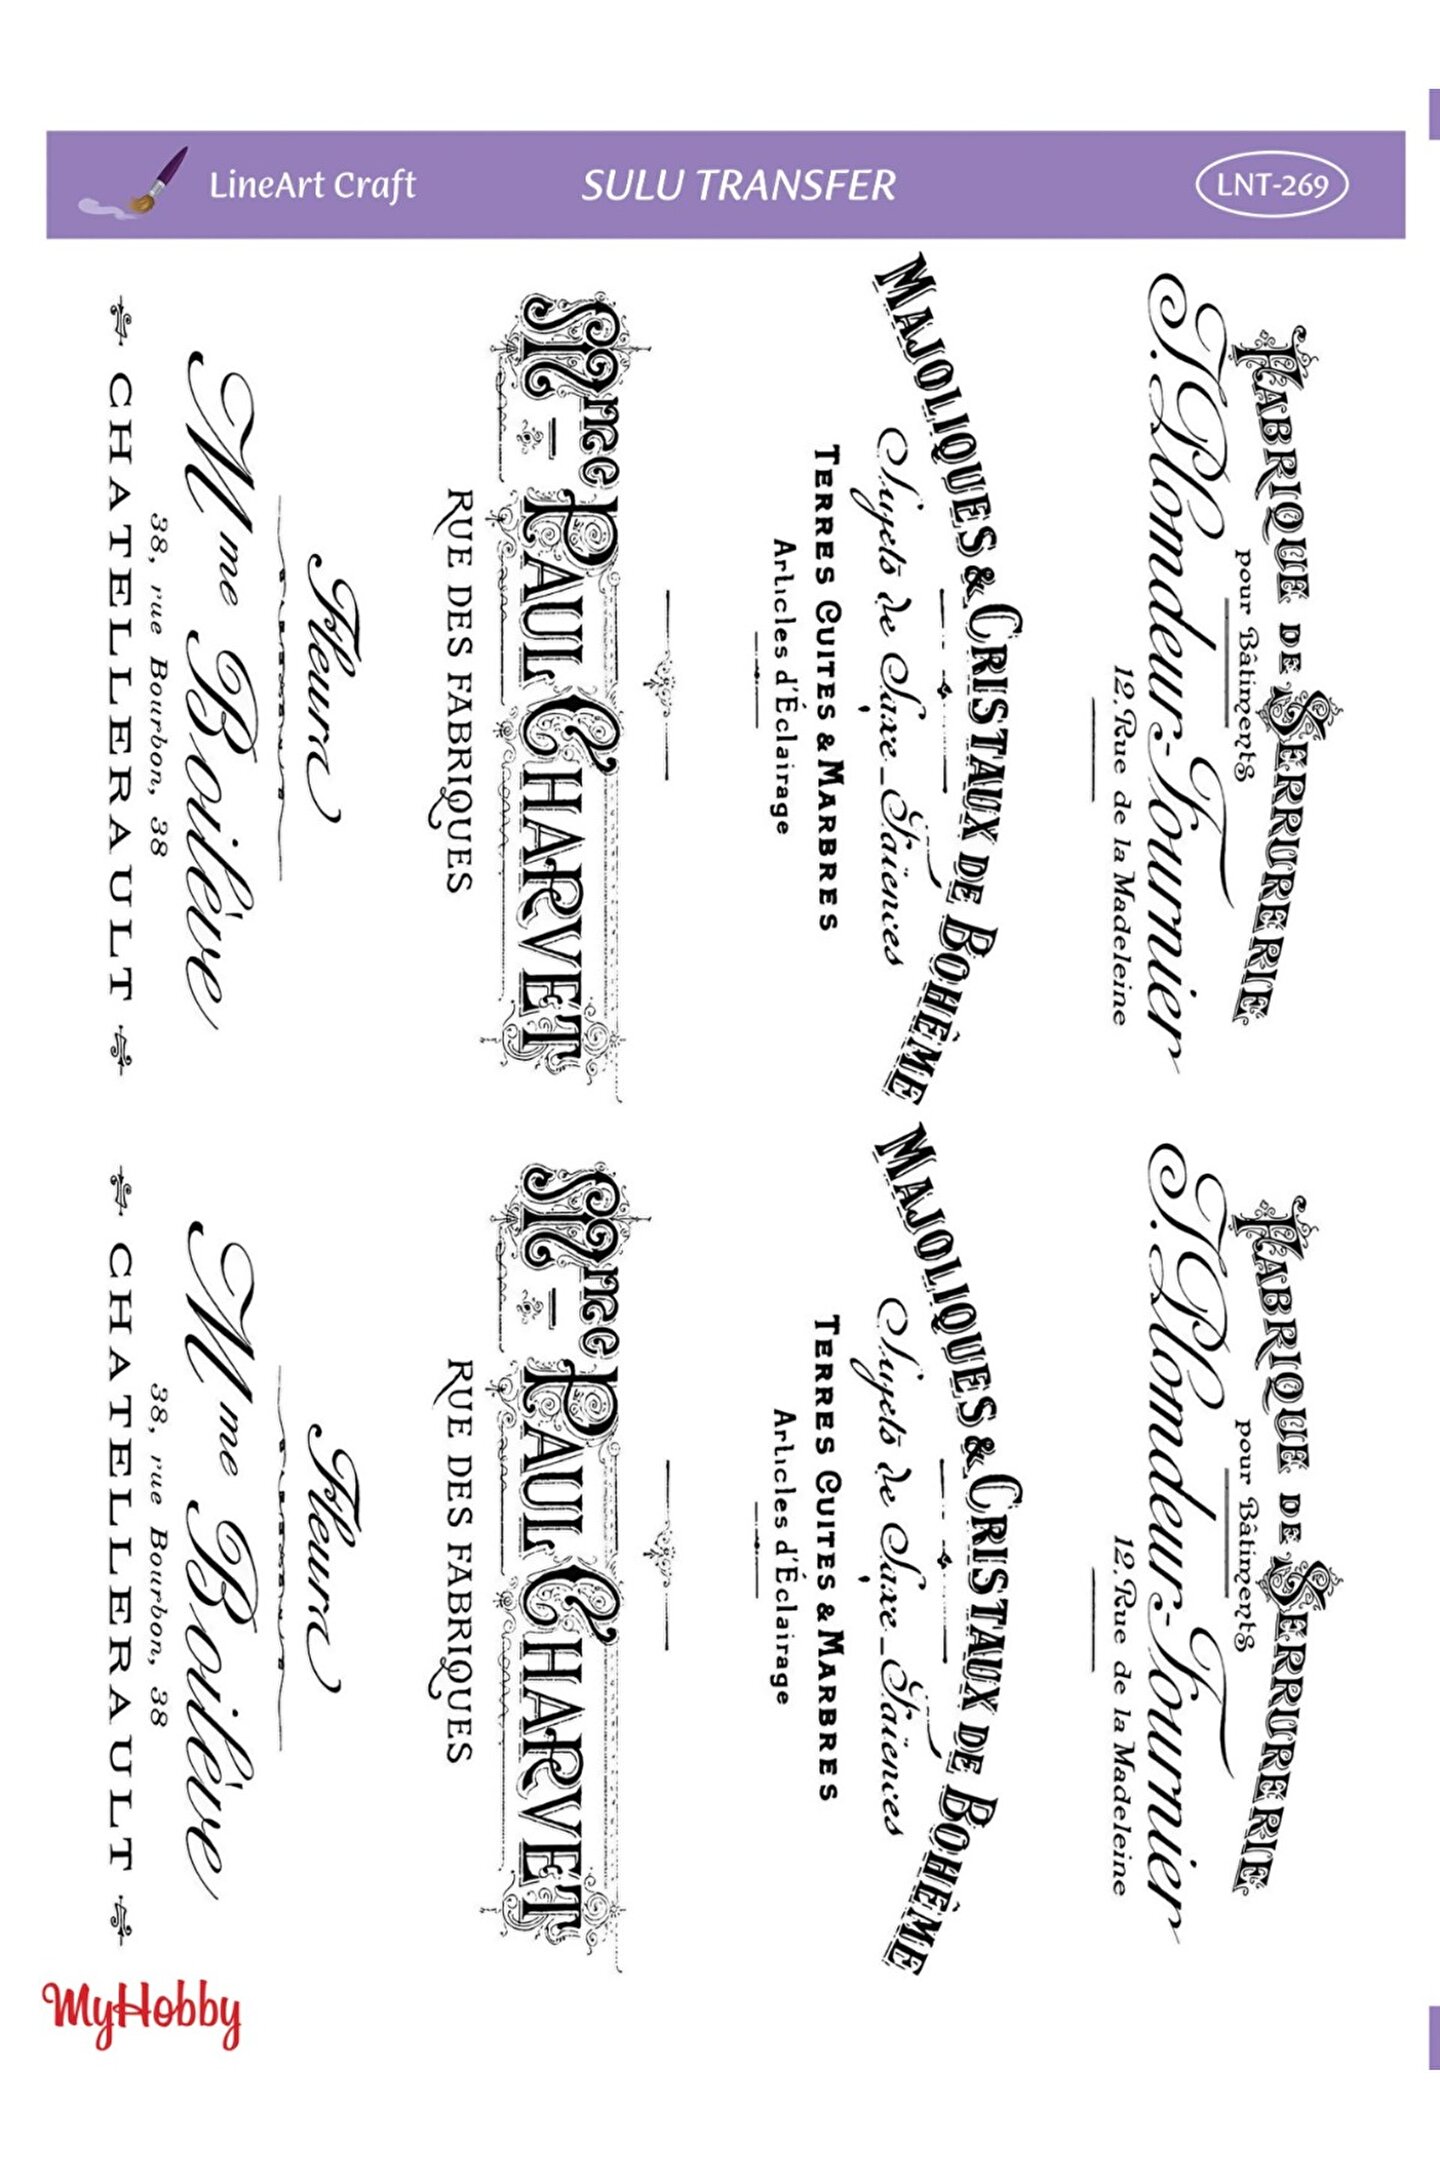 LineArt Craft
SULU TRANSFER
LNT-269
FABRIQUE DE SERRURERIE
pour Bâtiments
P. Plomdeur-Fournier
12, Rue de la Madeleine
MAJOLIQUES & CRISTAUX DE BOHÊME
Sujets de Saxe_Faïences
TERRES CUITES & MARBRES
Articles d'Éclairage
Mon PAUL CHARVET
RUE DES FABRIQUES
Fleurs
Mme Boilève
38, rue Bourbon, 38
CHATELLERAULT
FABRIQUE DE SERRURERIE
pour Bâtiments
P. Plomdeur-Fournier
12, Rue de la Madeleine
MAJOLIQUES & CRISTAUX DE BOHÊME
Sujets de Saxe_Faïences
TERRES CUITES & MARBRES
Articles d'Éclairage
Mon PAUL CHARVET
RUE DES FABRIQUES
Fleurs
Mme Boilève
38, rue Bourbon, 38
CHATELLERAULT
MyHobby